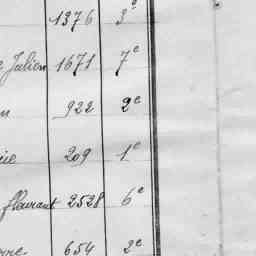 1376 3e
Julien 1671 7e
922 2e
209 1e
fleurant 2528 6e
654 2e